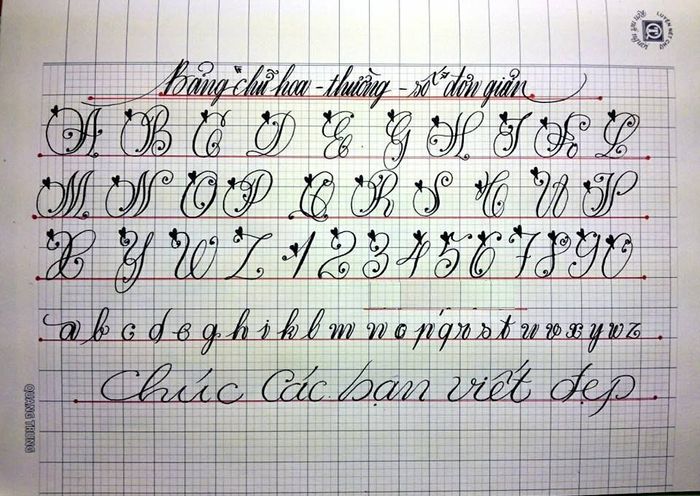 Bảng chữ hoa - thường - số đơn giản
A B C D E G H I K L
M N O P Q R S T U V
X Y W Z 1 2 3 4 5 6 7 8 9 0
a b c d e g h i k l m n o p q r s t u v x y w z
Chúc Các bạn viết đẹp
QUANG TRUNG
LUYỆN NÉT CHỮ